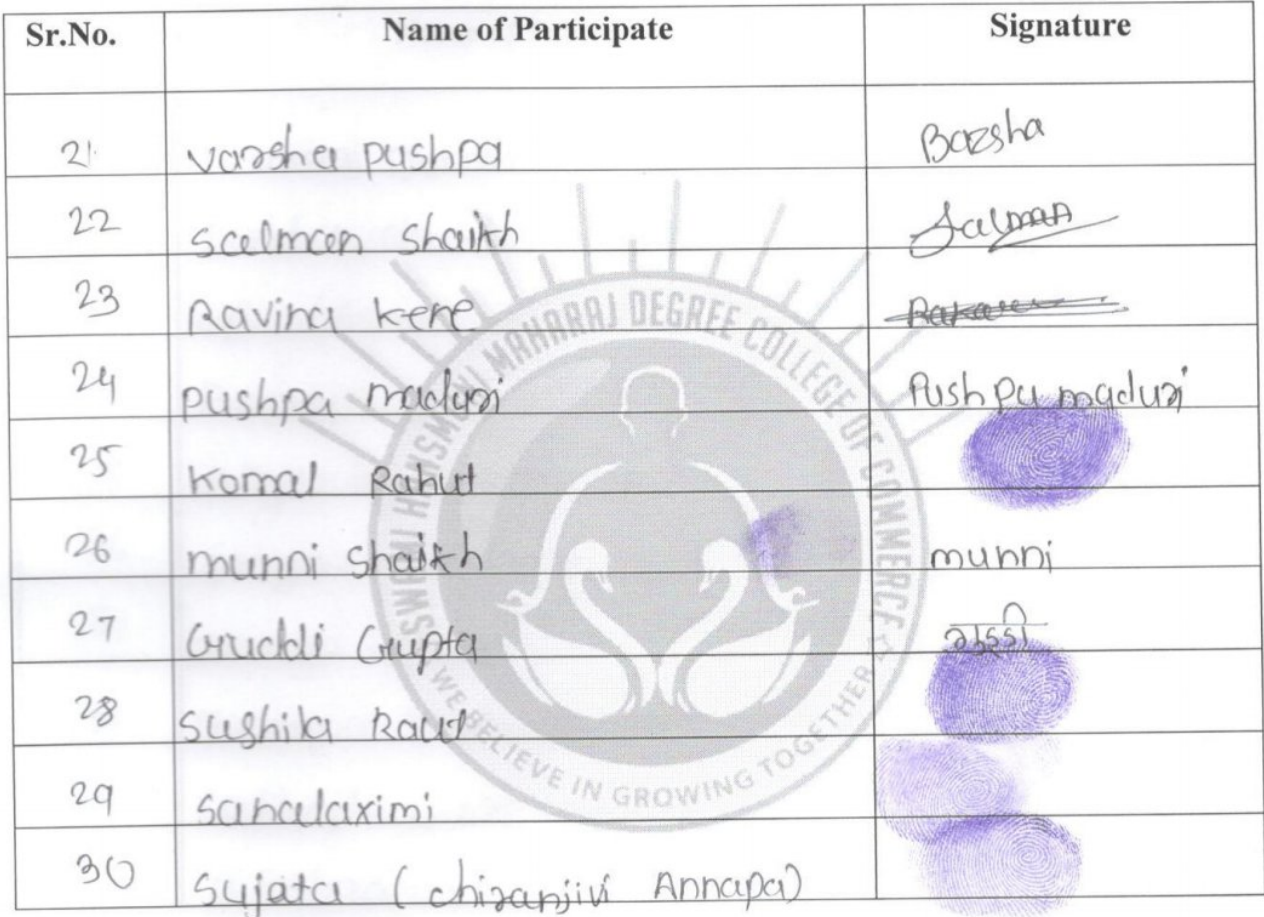 Sr.No. Name of Participate Signature
21 varsha pushpa Barsha
22 salman shaikh Salman
23 Ravina kene
24 pushpa maduri Pushpa maduri
25 Komal Rahut
26 munni shaikh munni
27 Guddi Gupta गुड्डी
28 sushila Raut
29 sanalaximi
30 sujata (chiranjivi Annapa)
SWAMI HANSMUNI MAHARAJ DEGREE COLLEGE OF COMMERCE
WE BELIEVE IN GROWING TOGETHER